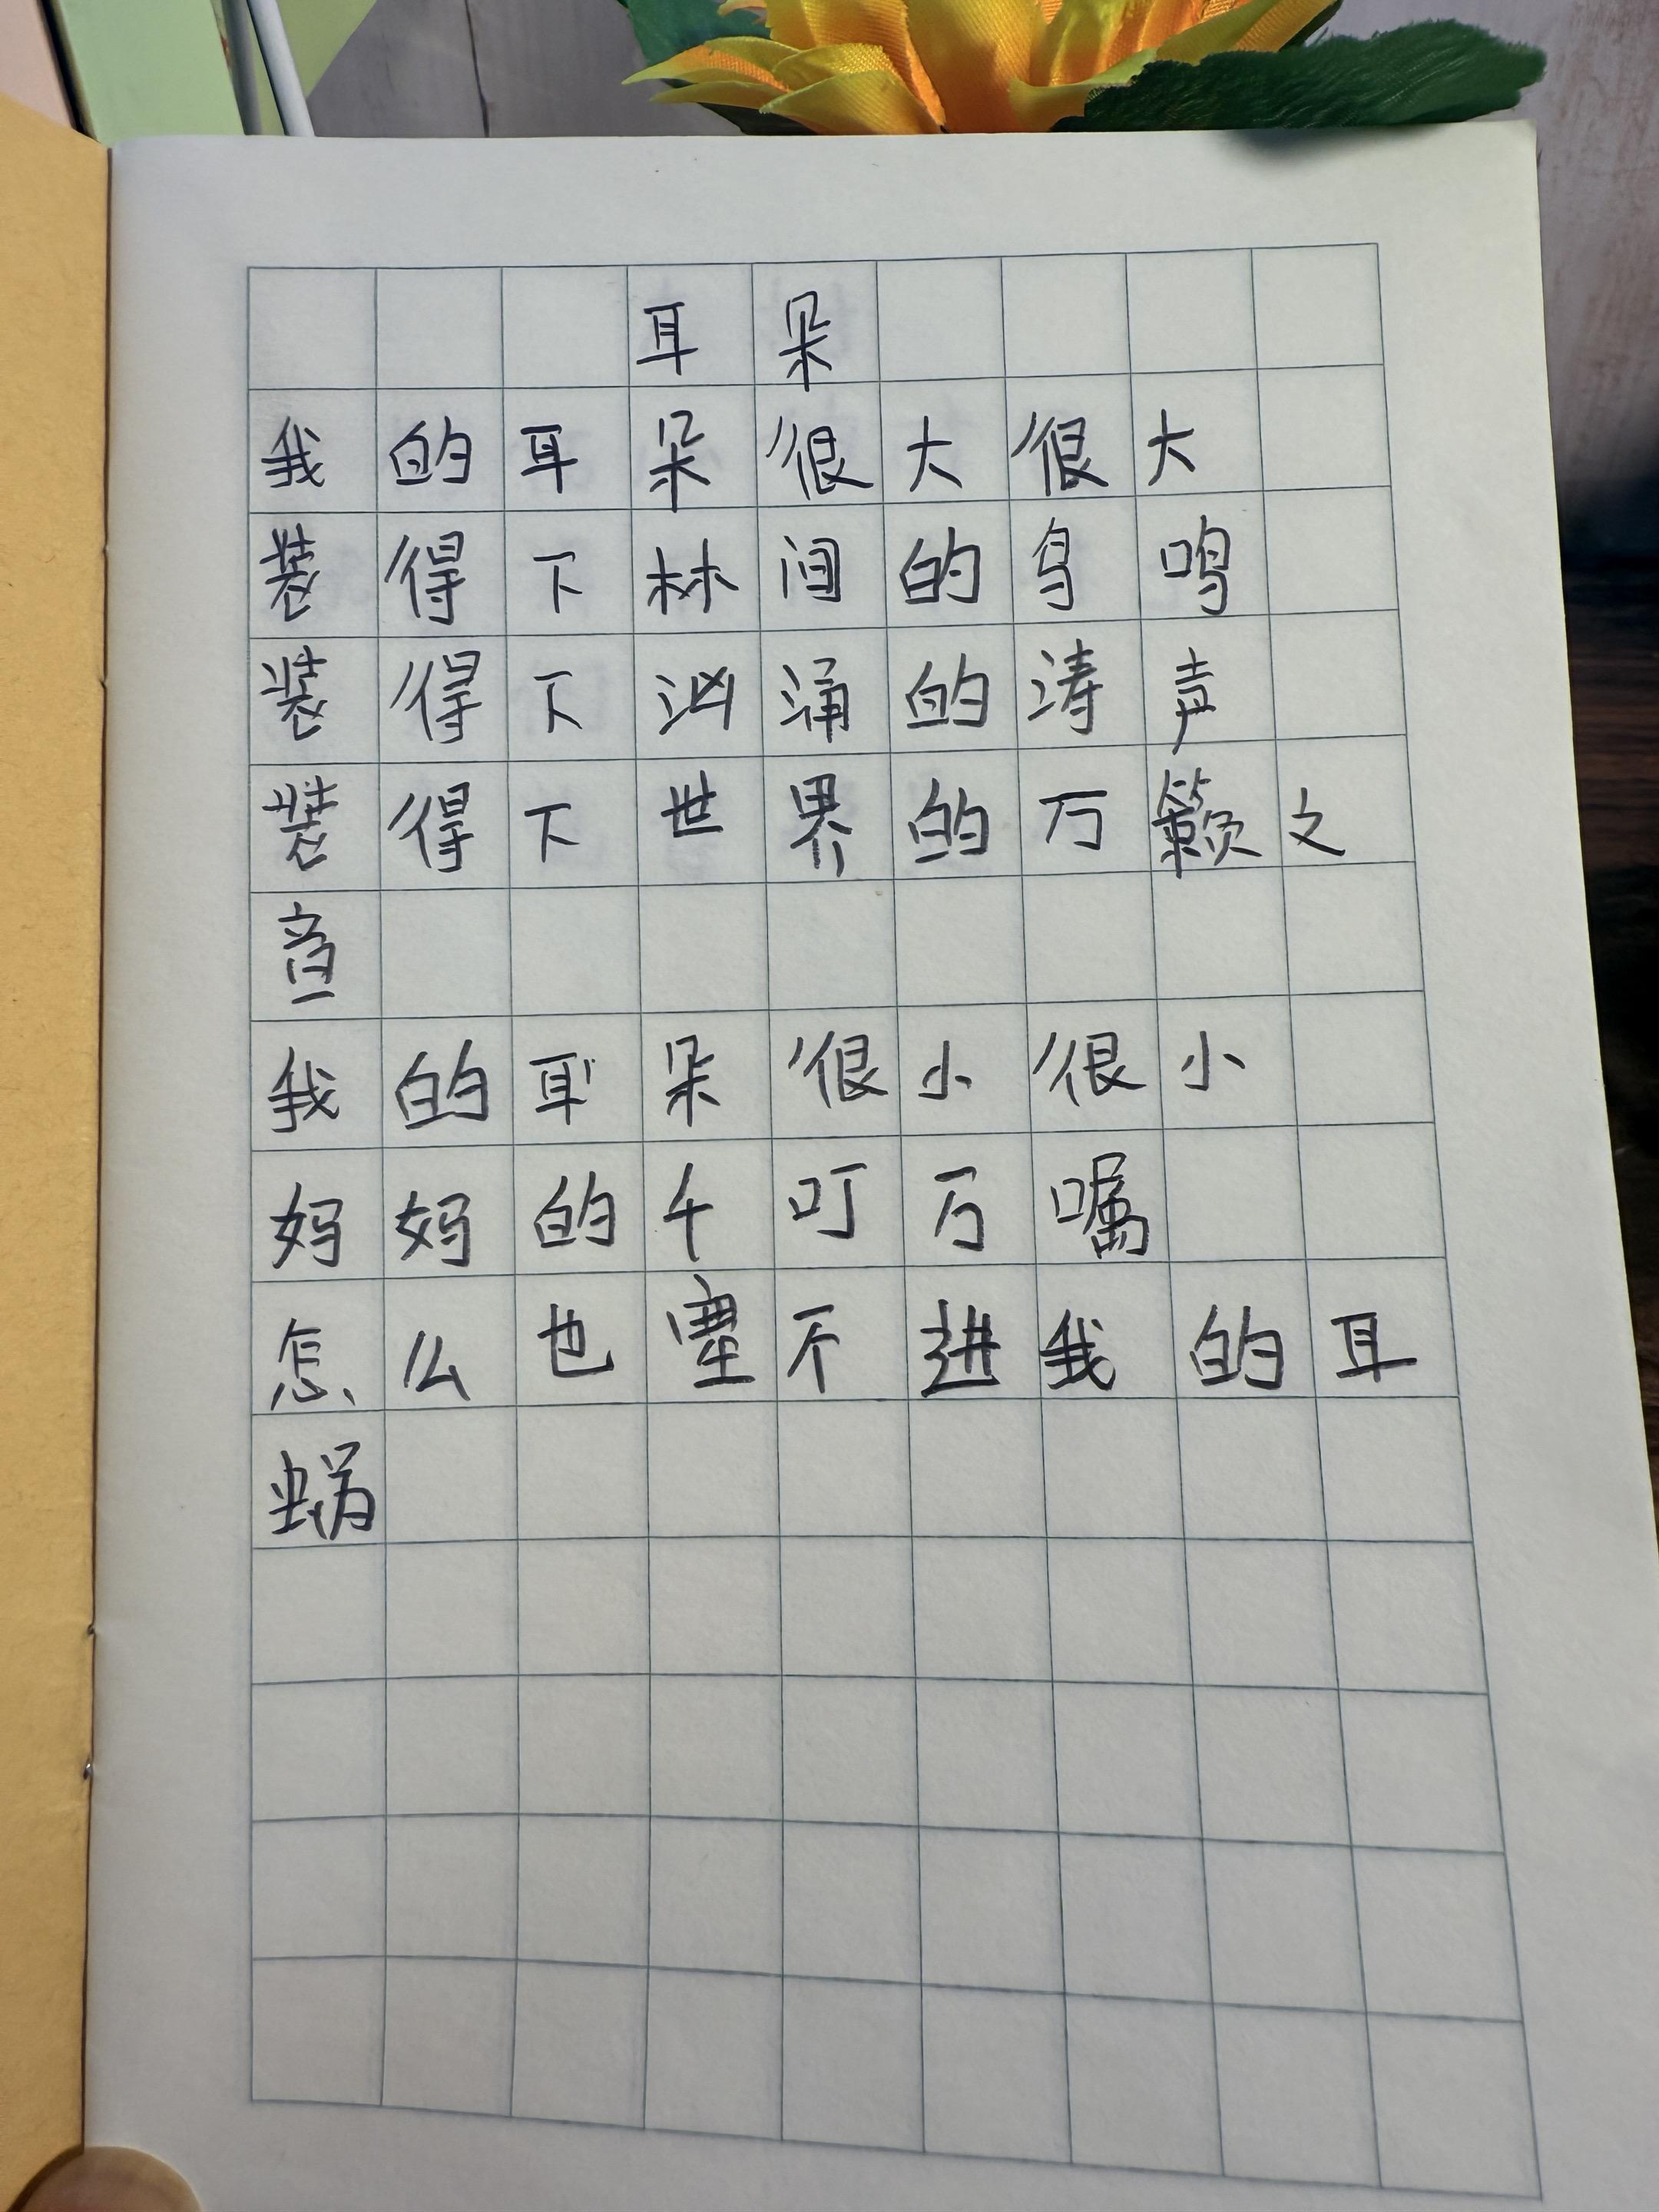 耳朵
我的耳朵很大很大
装得下林间的鸟鸣
装得下汹涌的涛声
装得下世界的万籁之
音
我的耳朵很小很小
妈妈的千叮万嘱
怎么也塞不进我的耳
蜗